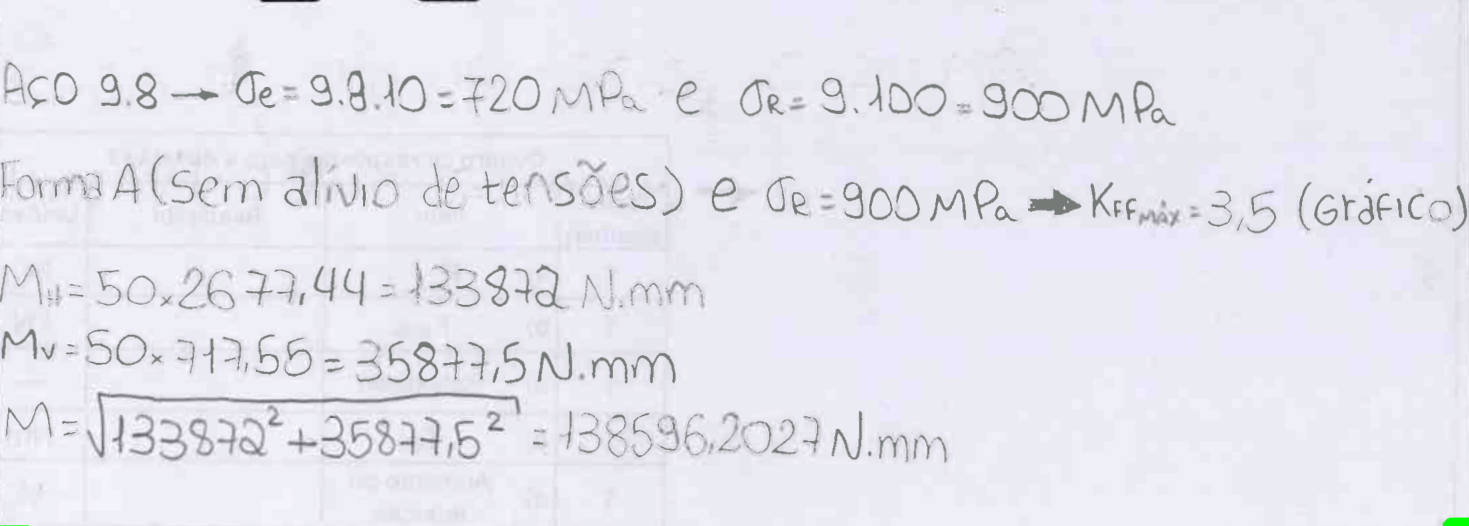 AÇO 9.8 → σe = 9.8.10 = 720 MPa e σR = 9.100 = 900 MPa
Forma A (Sem alívio de tensões) e σR = 900 MPa → KFFMÁX = 3,5 (Gráfico)
MH = 50 x 2677,44 = 133872 N.mm
Mv = 50 x 717,55 = 35877,5 N.mm
M = √133872² + 35877,5² = 138596,2027 N.mm